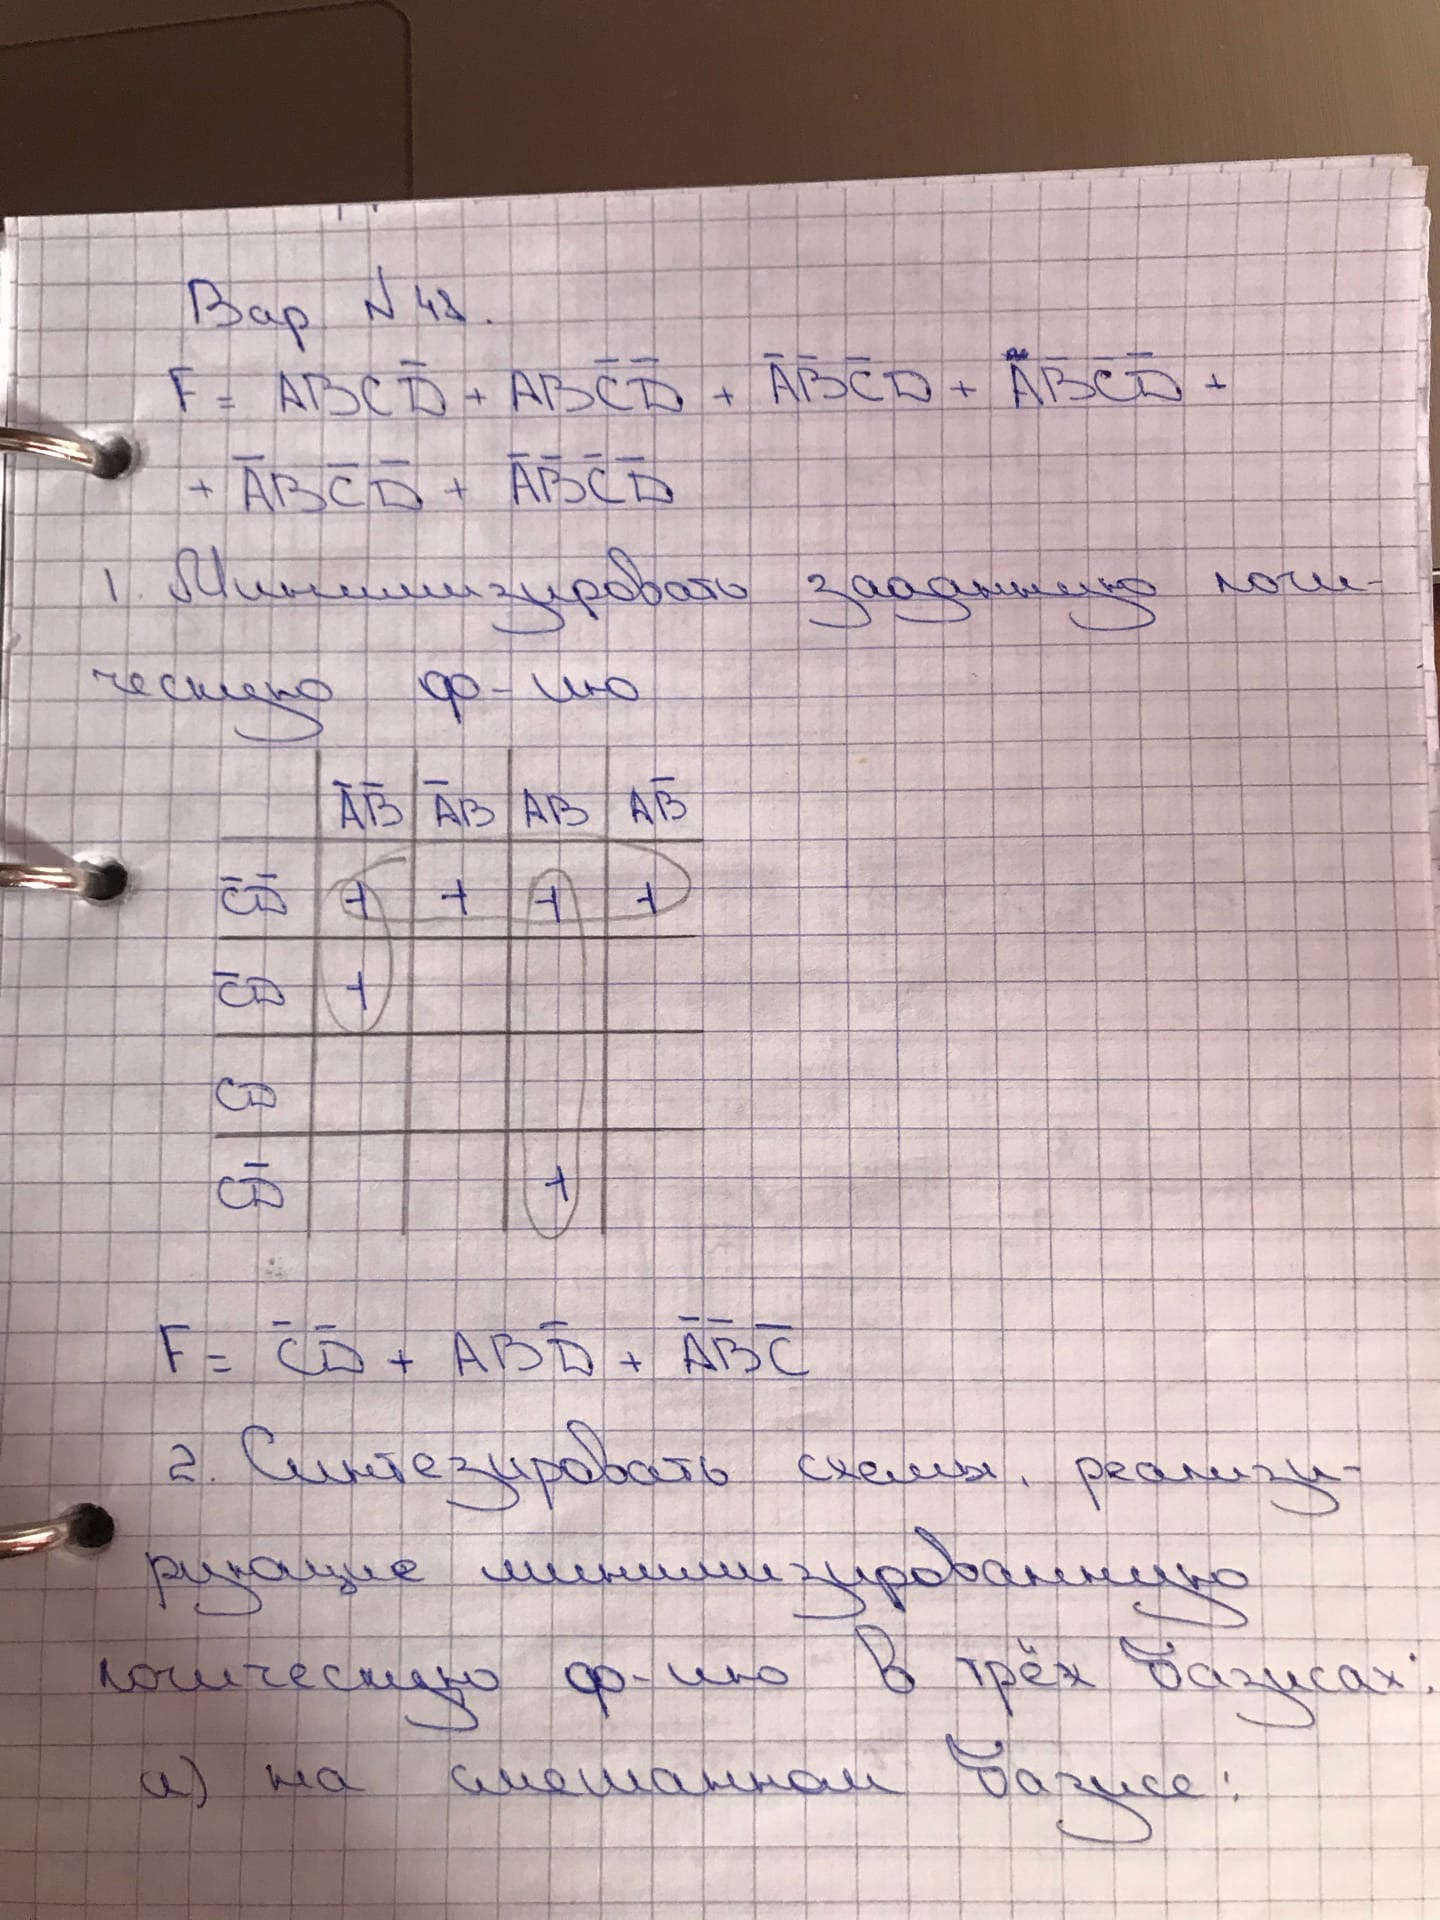 Вар N 48.
F = ABCD̅ + ABC̅D̅ + A̅B̅C̅D + AB̅C̅D̅ +
+ A̅BC̅D̅ + A̅B̅C̅D̅
1. Минимизировать заданную логи-
ческую ф-цию
A̅B̅ A̅B AB AB̅
C̅D̅ + + + +
C̅D +
CD
CD̅ +
F = C̅D̅ + ABD̅ + A̅B̅C̅
2. Синтезировать схемы, реализу-
рующие минимизированную
логическую ф-цию в трёх базисах:
а) на смешанном базисе: